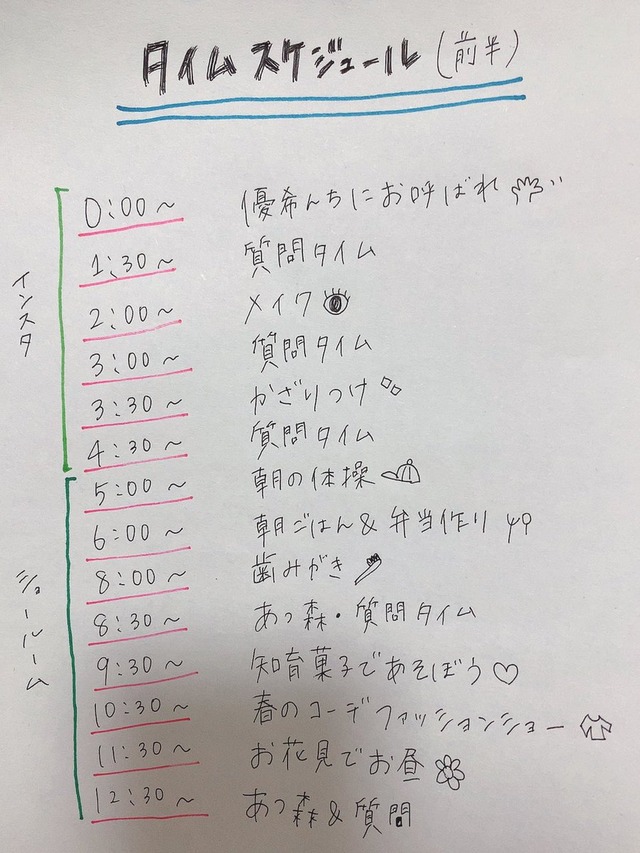 タイムスケジュール(前半)
インスタ
0:00~ 優希んちにお呼ばれ
1:30~ 質問タイム
2:00~ メイク
3:00~ 質問タイム
3:30~ かざりつけ
4:30~ 質問タイム
ショールーム
5:00~ 朝の体操
6:00~ 朝ごはん&弁当作り
8:00~ 歯みがき
8:30~ あつ森・質問タイム
9:30~ 知育菓子であそぼう♡
10:30~ 春のコーデファッションショー
11:30~ お花見でお昼
12:30~ あつ森&質問